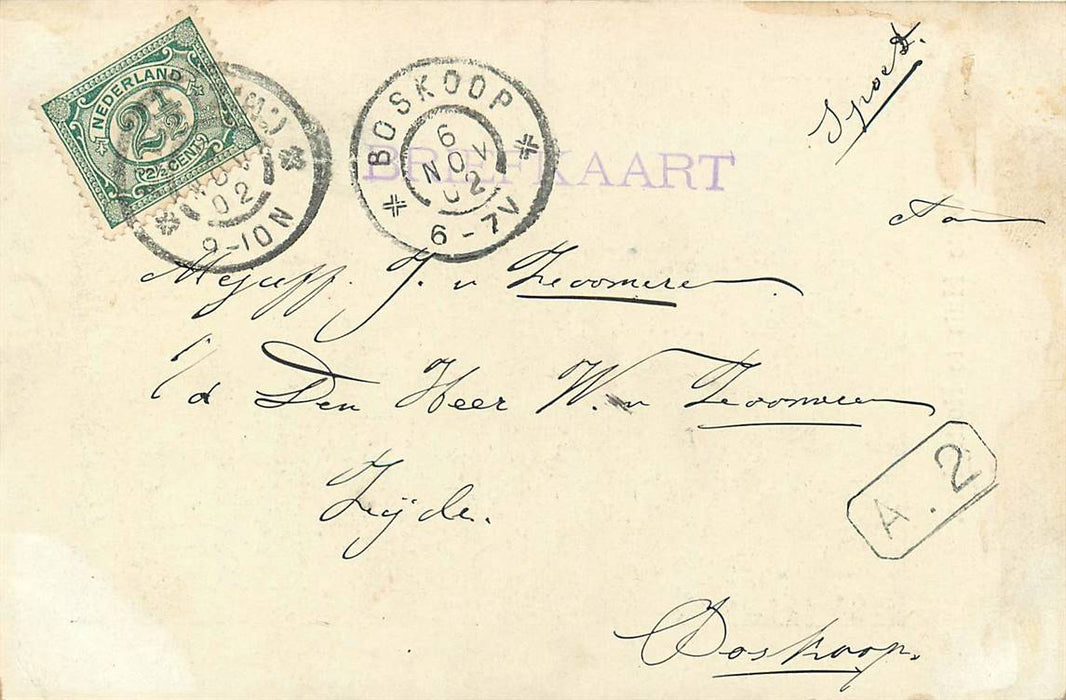 Spoed.
NEDERLAND
2½
2½ CENT
NOV
02
9-10N
BOSKOOP
6
NOV
02
6-7V
BRIEFKAART
Aan
Mejuff. J. v Zoomeren
i/d Den Heer W. v Zoomeren
Zijde.
A.2
Boskoop.